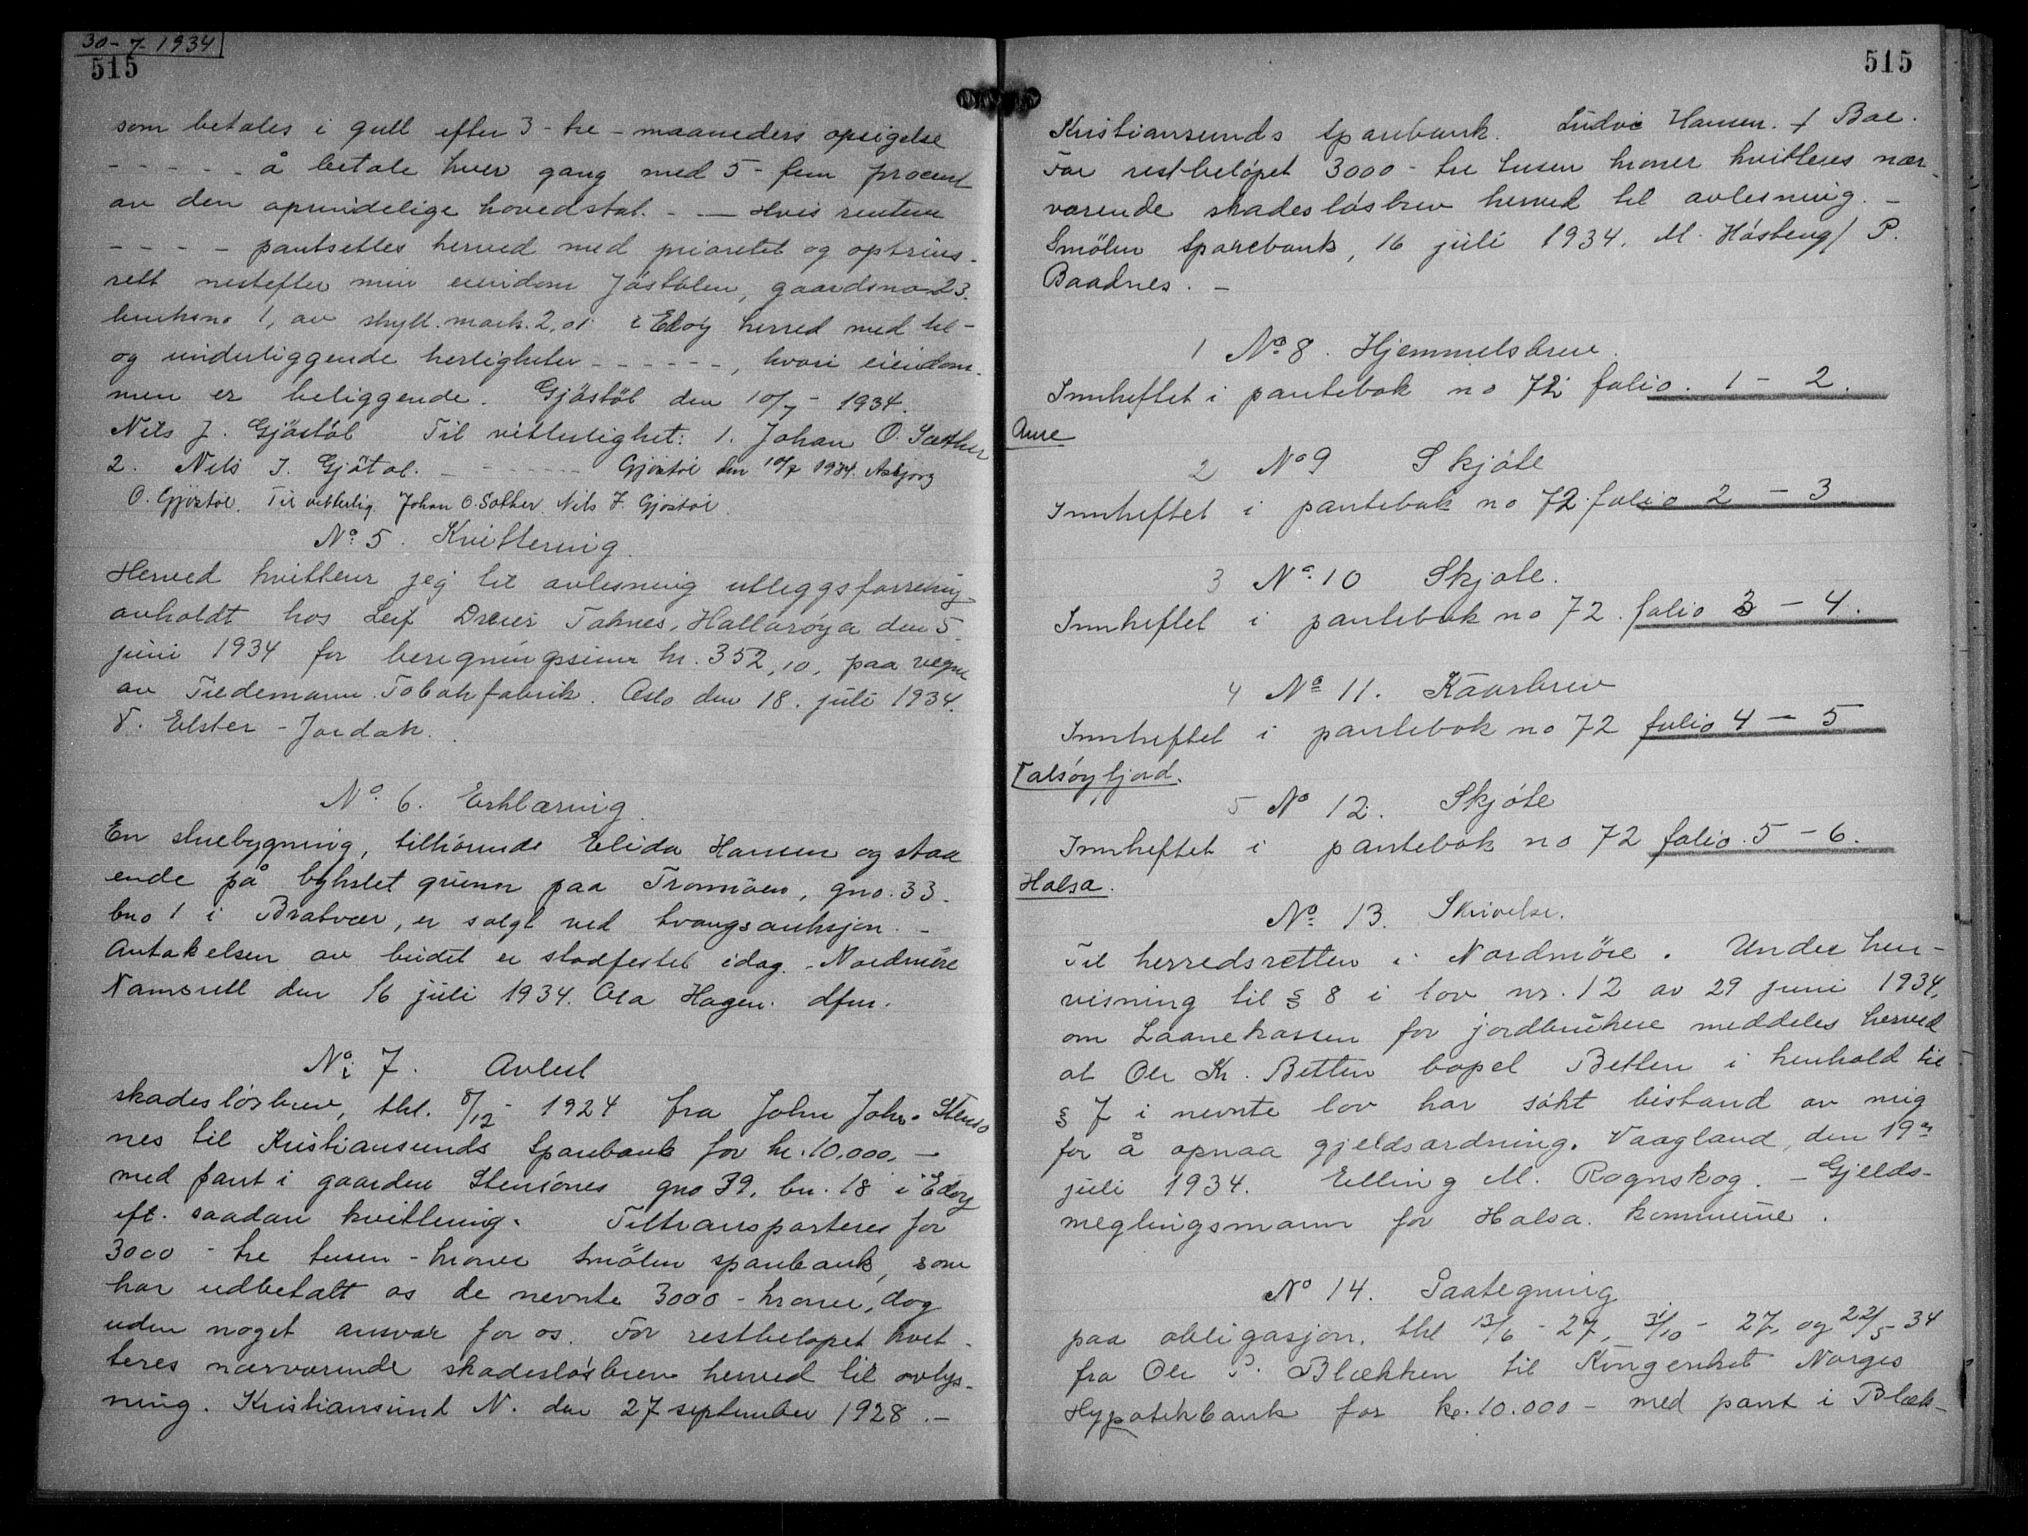 30-7-1934
515
som betales i gull efter 3 - tre - maaneders opsigelse
- - - - - å betale hver gang med 5 - fem procent
av den oprindelige hovedstol. - — Hvis rentene
- - - - pantsettes herved med prioretet og optrins-
rett nestefter min eiendom Jøstølen, gaardsno 23.
bruksno 1, av skyll. mark. 2,01 i Edøy herred med til-
og underliggende herligheter - - - - - -, hvori eiendom-
men er beliggende. Gjøstøl den 10/7 - 1934.
Nils J. Gjøstøl Til vitterlighet: 1. Johan O. Sæther
2. Nils J. Gjøtøl. - - - - - - - Gjøstøl den 10/7 1934. Asbjørg
O. Gjøstøl. Til vitterlig. Johan O. Sæther. Nils J. Gjøstøl.
No. 5. Kvittering.
Herved kvitterer jeg til avlesning utleggsforretning
avholdt hos Leif Dreier Taknes, Hallarøya den 5.
juni 1934 for beregningssum kr. 352,10, paa vegne
av Tiedemann Tobakfabrik. Oslo den 18. juli 1934.
V. Elster - Jordan.
No. 6. Erklæring.
En stuebygning, tilhørende Elida Hansen og staa
ende på bykslet grunn paa Tromøen, gno. 33.
bno 1 i Bratvær, er solgt ved tvangsauksjon. -
Antakelsen av budet er stadfestet idag. - Nordmøre
Namsrett den 16 juli 1934. Ola Hagen. dfm.
No. 7. Avlest
skadesløsbrev, thl. 8/12 - 1924 fra John Johs. Stensø
nes til Kristiansunds Sparebank for kr. 10.000, —
med pant i gaarden Stensønes gno 39, bn. 18 i Edøy
eft. saadan kvittering. Tiltransporteres for
3000 - tre tusen - kroner Smølen sparebank, som
har udbetalt os de nevnte 3000 - kroner, dog
uden noget ansvar for os. For restbeløpet kvit-
teres nærværende skadesløsbrev herved til avlys-
ning. Kristiansund N. den 27 september 1928. —
515
Kristiansunds Sparebank. Ludvi Hansen. / Bae.
For restbeløpet 3000 - tre tusen kroner kvitteres nær-
værende skadesløsbrev herved til avlesning. -
Smølen Sparebank, 16 juli 1934. M. Høsteng / P.
Baadnes. -
1 No. 8. Hjemmelsbrev.
Innheftet i pantebok no 72 folio. 1 - 2.
Aure
2 No 9 Skjøte
Innheftet i pantebok no 72. folio 2 - 3
3 No. 10 Skjøte.
Innheftet i pantebok no 72. folio 3 - 4.
4 No 11. Kaarbrev
Innheftet i pantebok no 72 folio 4 - 5
Valsøyfjord.
5 No 12. Skjøte
Innheftet i pantebok no 72 folio. 5 - 6.
Halsa.
No. 13. Skrivelse.
Til herredsretten i Nordmøre. Under hen-
visning til § 8 i lov nr. 12 av 29 juni 1934,
om Laanekassen for jordbrukere meddeles herved
at Ole Kr. Betten bopel Betten i henhold til
§ 7 i nevnte lov har søkt bistand av mig
for å opnaa gjeldsordning. Vaagland, den 19de
juli 1934. Elling M. Rognskog. - Gjelds-
meglingsmann for Halsa. kommune.
No 14. Paategning
paa obligasjon, thl 13/6 - 27, 31/10 - 27, og 22/5 - 34
fra Ole P. Blekken til Kongeriket Norges
Hypotekbank for kr. 10.000 - med pant i Blek-